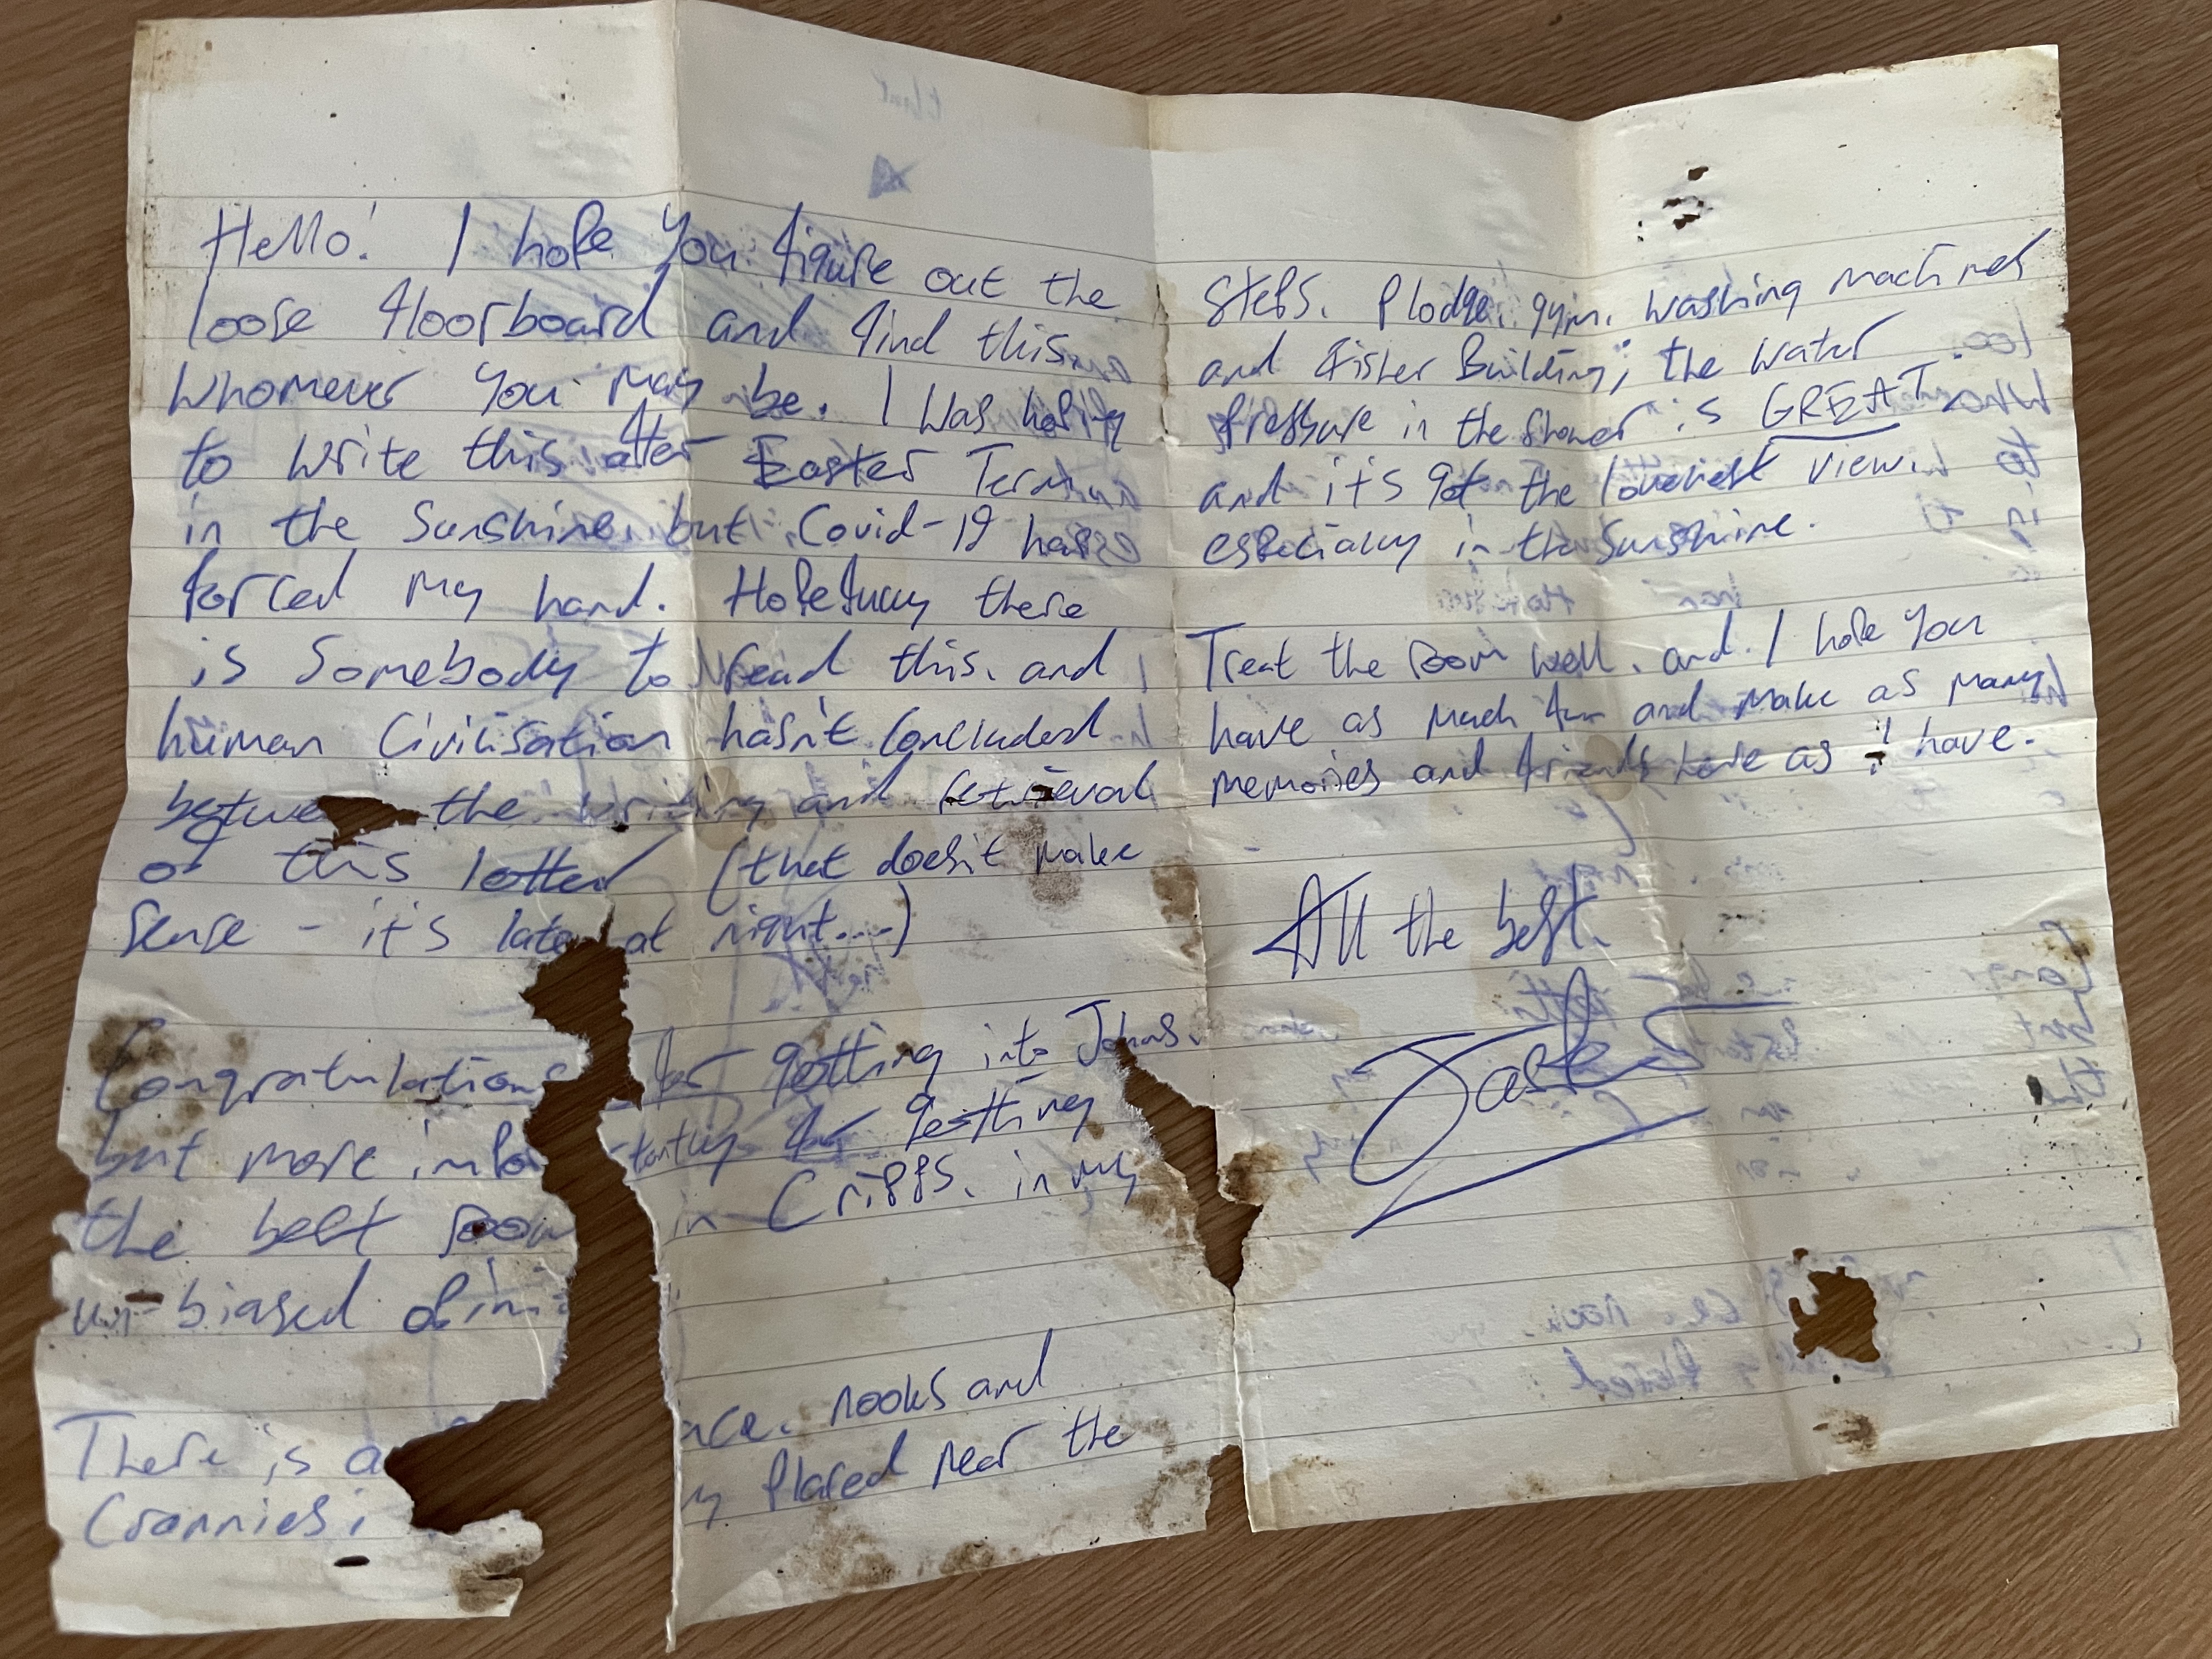 Hello! I hope you figure out the
loose floorboard and find this,
whomever you may be. I was hoping
to write this after Easter Term
in the sunshine, but Covid-19 has
forced my hand. Hopefully there
is somebody to read this, and
human civilisation hasn't concluded
between the writing and retrieval
of this letter (that doesn't make
sense - it's late at night...)
Congratulations for getting into Johns,
but more impo tantly for getting
the best room in Cripps, in my
un-biased opini
There is a nce, nooks and
crannies; y placed near the
steps, Plodge, gym, washing machines
and Fisher Building; the water
pressure in the shower is GREAT
and it's got the loveliest view,
especially in the sunshine.
Treat the room well, and I hope you
have as much fun and make as many
memories and friends here as I have.
All the best,